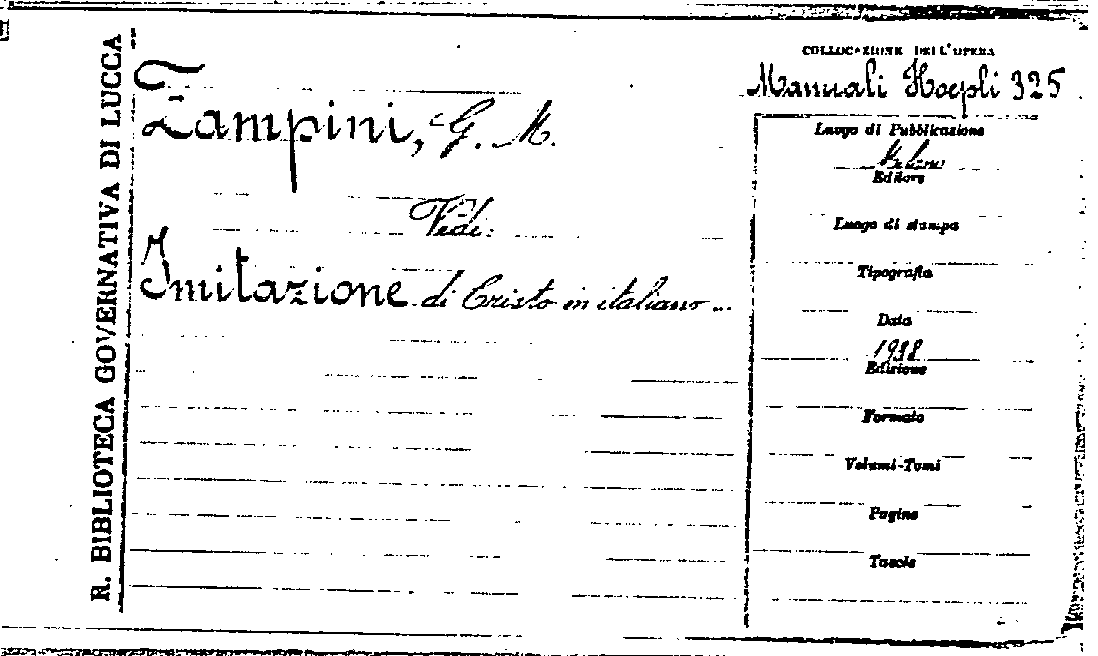 R. BIBLIOTECA GOVERNATIVA DI LUCCA
Zampini, G. M.
Vedi:
Imitazione di Cristo in italiano ...
COLLOCAZIONE DELL'OPERA
Manuali Hoepli 325
Luogo di Pubblicazione
Milano
Editore
Luogo di stampa
Tipografia
Data
Edizione
Formato
Volumi-Tomi
Pagine
Tavole